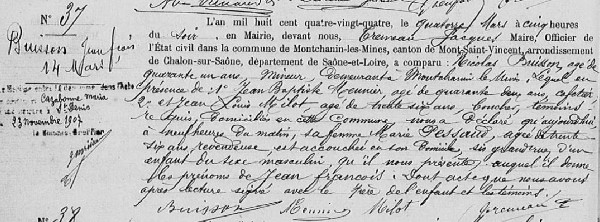 N° 37
Buisson Jean fçois
14 Mars
Marié
Cazabonne Maria
à St Denis
23 Novembre 1907
L'an mil huit cent quatre-vingt-quatre, le Quatorze Mars à Cinq heures
du Soir, en Mairie, devant nous, Jacques Maire, Officier de
l'État civil dans la commune de Montchanin-les-Mines, canton de Mont-Saint-Vincent, arrondissement
de Chalon-sur-Saône, département de Saône-et-Loire, a comparu : Nicolas Buisson, agé de
quarante un ans, Mineur Demeurant à Montchanin les Mines, lequel en
présence de Mr Jean Baptiste Meunier, agé de quarante deux ans, cafetier
2° et Jean Louis Milot, agé de trente six ans, témoins
requis, Domiciliés en cette Commune, nous a Déclaré qu'aujourd'hui
à neuf heures Du matin, sa femme Marie Dessaud, agée de trente
six ans, revendeuse, est accouchée en son Domicile, d'un
enfant du sexe masculin, qu'il nous présente, auquel il donne
les prénoms de Jean François. Dont acte que nous avons
après lecture signé avec le Père de l'enfant et les témoins.
Buisson Meunier Milot
N° 38